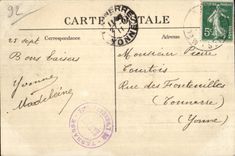 92
CARTE POSTALE
Correspondance
Adresse
25 sept
Bons baisers
Yvonne
Madeleine
Monsieur Pierre
Courtois
Rue des Fontenilles
Tonnerre
(Yonne)
YONNE
5